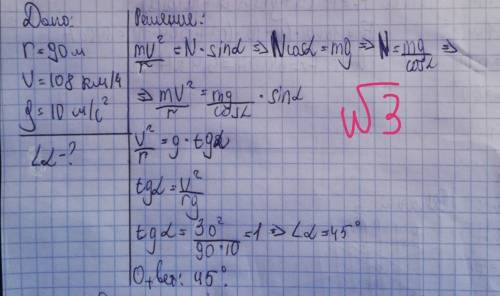 Дано:
r = 90 м
V = 108 км/ч
g = 10 м/с²
∠α - ?
Решение:
mV²/r = N · sinα ⇒ N cosα = mg ⇒ N = mg/cosα ⇒
⇒ mV²/r = mg/cosα · sinα
V²/r = g · tgα
tgα = V²/rg
tgα = 30²/90·10 = 1 ⇒ ∠α = 45°
Ответ: 45°.
√3